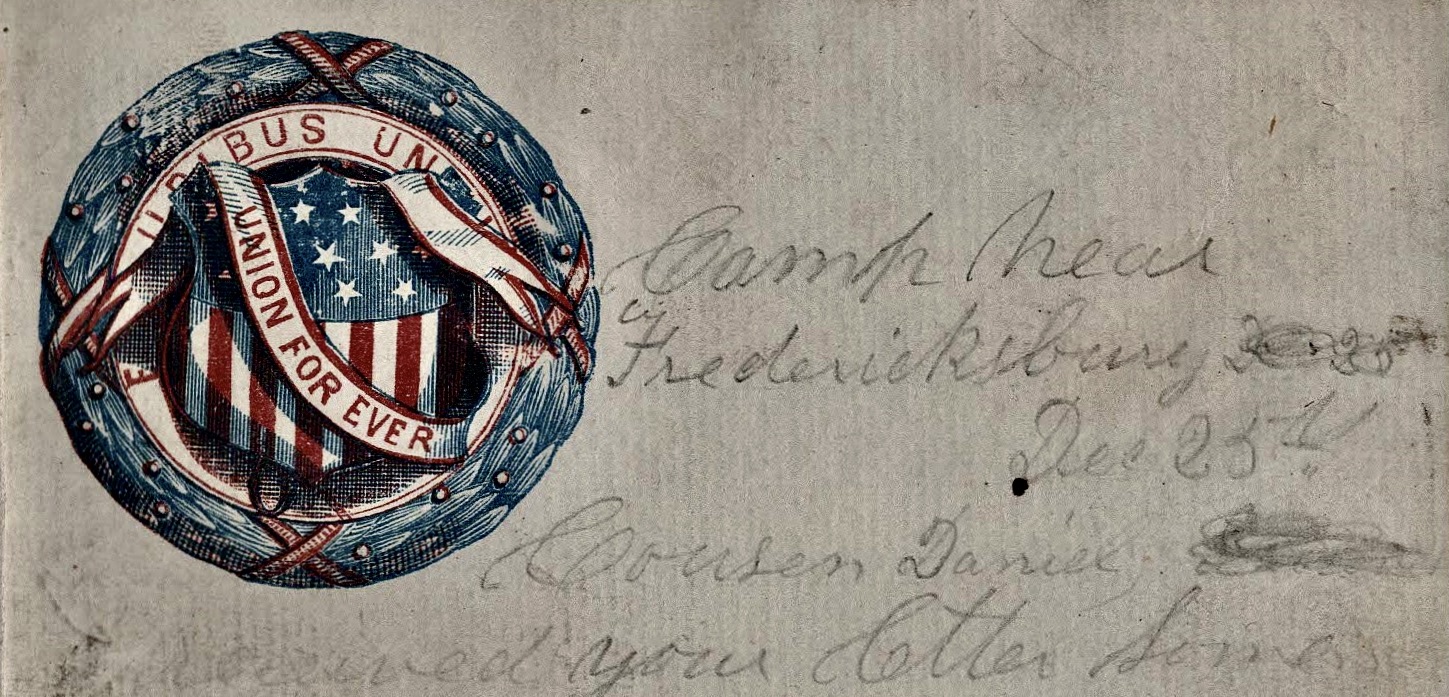 URIBUS UN
UNION FOR EVER
E
Camp Near
Fredericksburg
Dec 25th
Cousen Daniel,
I received your letter some